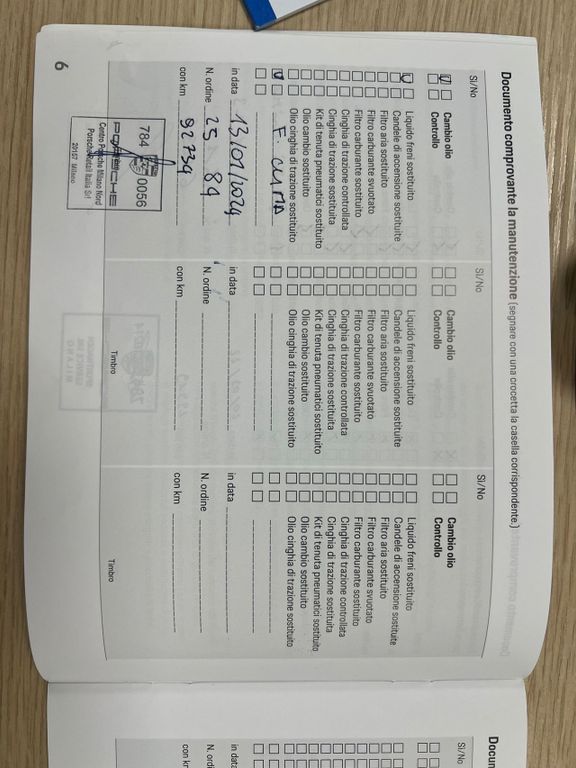 Documento comprovante la manutenzione (segnare con una crocetta la casella corrispondente.)
Sì/No
Cambio olio
Controllo
Liquido freni sostituito
Candele di accensione sostituite
Filtro aria sostituito
Filtro carburante svuotato
Filtro carburante sostituito
Cinghia di trazione controllata
Cinghia di trazione sostituita
Kit di tenuta pneumatici sostituito
Olio cambio sostituito
Olio cinghia di trazione sostituito
F. CLIMA
in data 13/01/2024
N. ordine 25 89
con km 92739
784 0056
PORSCHE
Centro Porsche Milano Nord
Porsche Retail Italia Srl
20157 Milano
Sì/No
Cambio olio
Controllo
Liquido freni sostituito
Candele di accensione sostituite
Filtro aria sostituito
Filtro carburante svuotato
Filtro carburante sostituito
Cinghia di trazione controllata
Cinghia di trazione sostituita
Kit di tenuta pneumatici sostituito
Olio cambio sostituito
Olio cinghia di trazione sostituito
in data
N. ordine
con km
Timbro
Sì/No
Cambio olio
Controllo
Liquido freni sostituito
Candele di accensione sostituite
Filtro aria sostituito
Filtro carburante svuotato
Filtro carburante sostituito
Cinghia di trazione controllata
Cinghia di trazione sostituita
Kit di tenuta pneumatici sostituito
Olio cambio sostituito
Olio cinghia di trazione sostituito
in data
N. ordine
con km
Timbro
6
Docum
Sì/No
in data
N. ordi
con kr